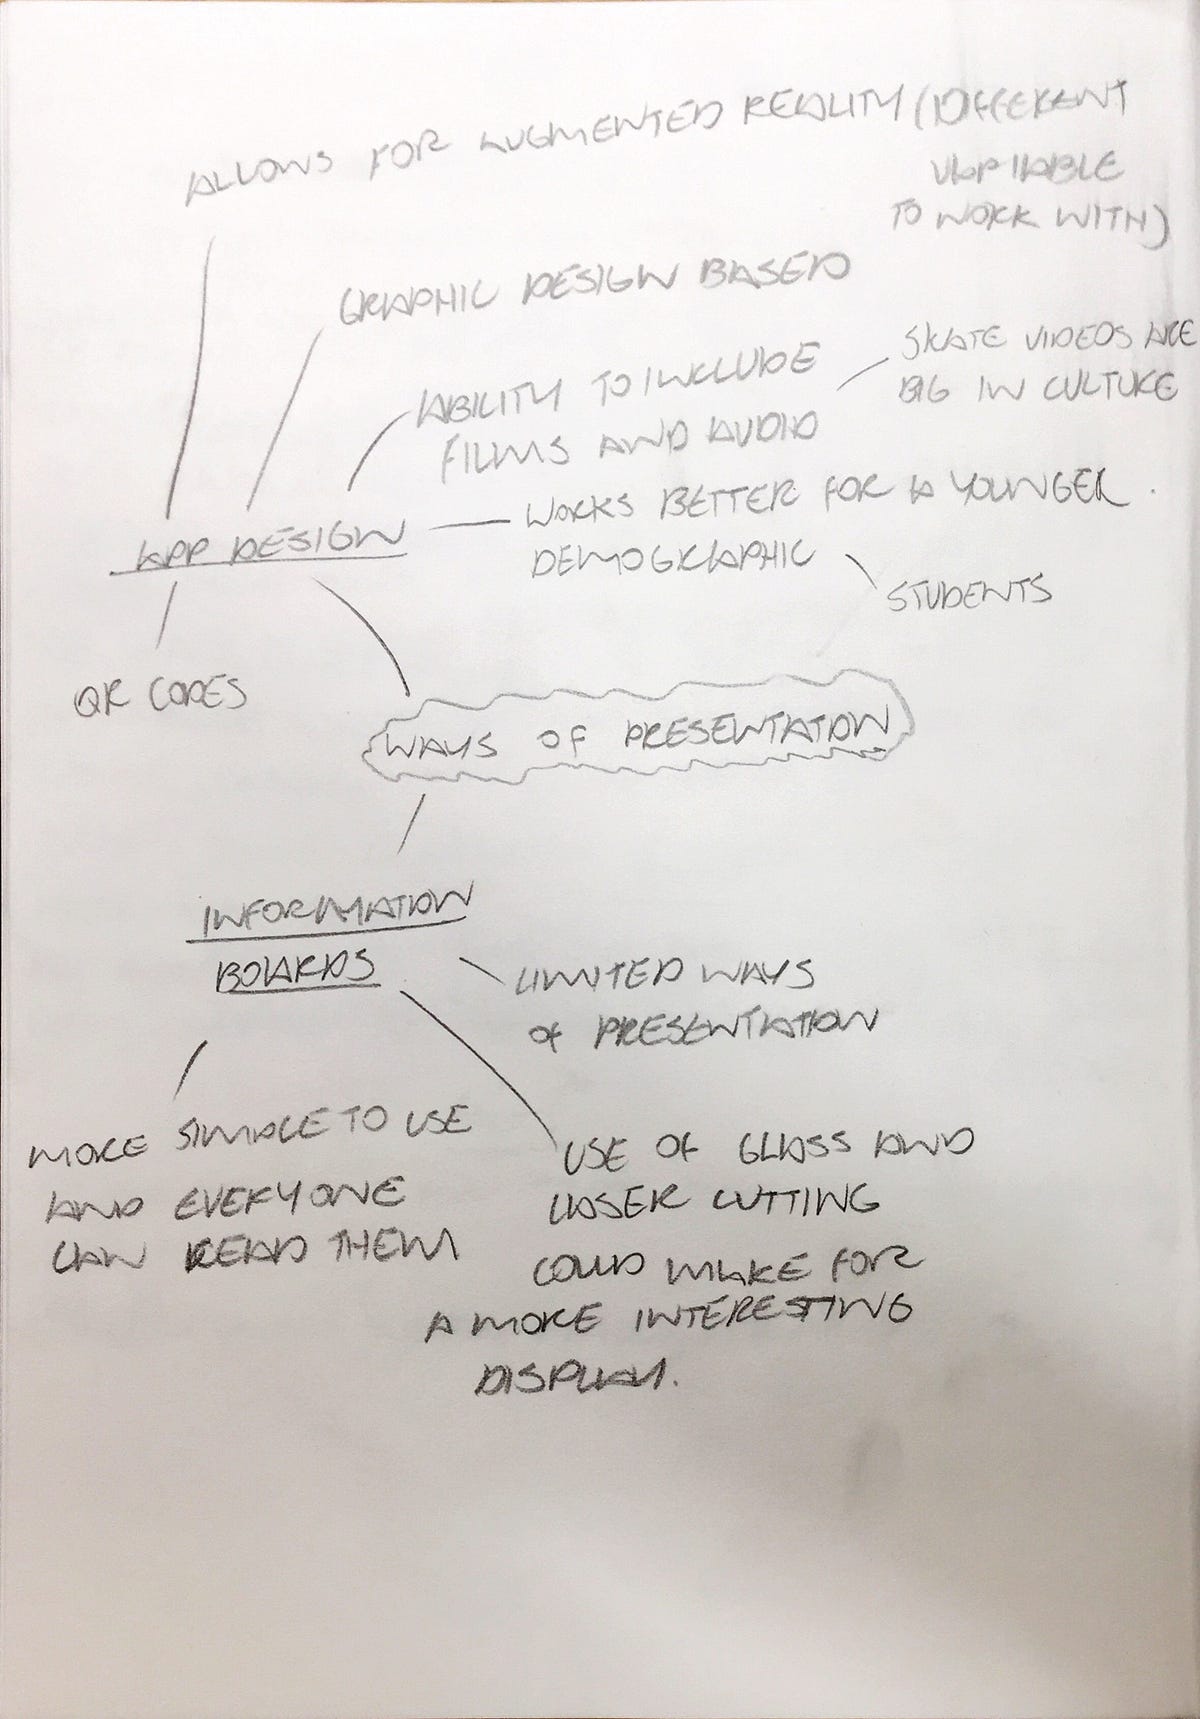 ALLOWS FOR AUGMENTED REALITY (DIFFERENT
VARIABLE
TO WORK WITH)
GRAPHIC DESIGN BASED
ABILITY TO INCLUDE
FILMS AND AUDIO
SKATE VIDEOS ARE
BIG IN CULTURE
WORKS BETTER FOR A YOUNGER
DEMOGRAPHIC
STUDENTS
APP DESIGN
QR CODES
WAYS OF PRESENTATION
INFORMATION
BOARDS
LIMITED WAYS
OF PRESENTATION
MORE SIMPLE TO USE
AND EVERYONE
CAN READ THEM
USE OF GLASS AND
LASER CUTTING
COULD MAKE FOR
A MORE INTERESTING
DISPLAY.